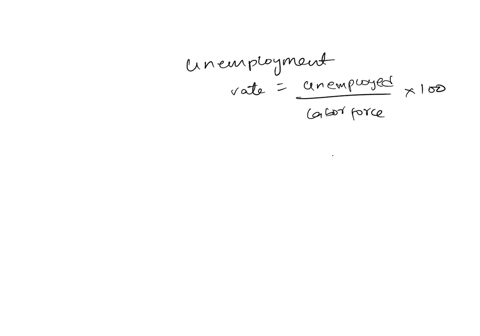 unemployment
rate = unemployed / labor force × 100